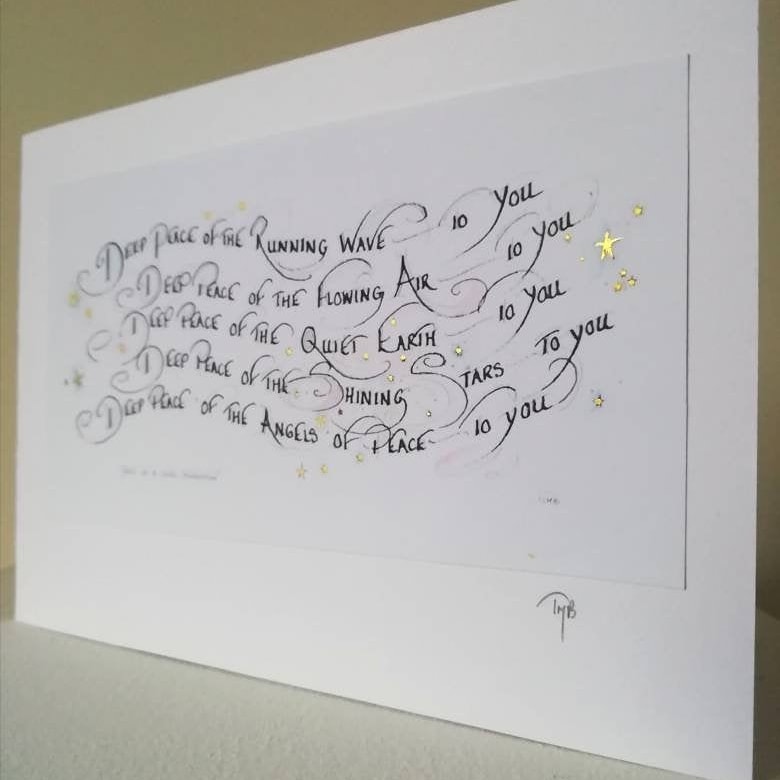 Deep Peace of the Running Wave to you
Deep Peace of the Flowing Air to you
Deep Peace of the Quiet Earth to you
Deep Peace of the Shining Stars to you
Deep Peace of the Angels of Peace to you
TMB